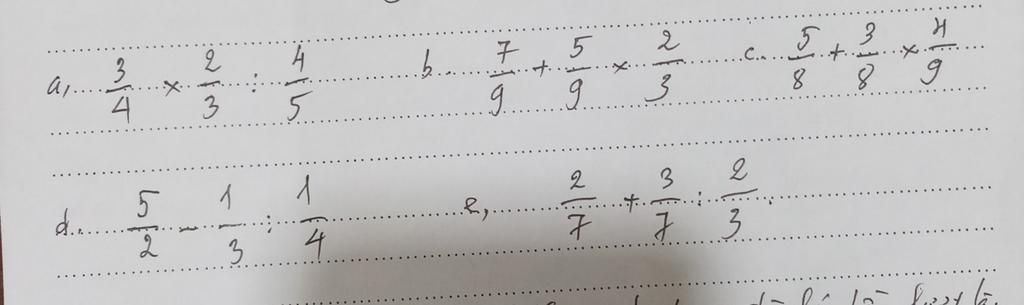 a, 3/4 × 2/3 : 4/5 b. 7/9 + 5/9 × 2/3 c. 5/8 + 3/8 × 4/9
d. 5/2 - 1/3 : 1/4 e, 2/7 + 3/7 : 2/3